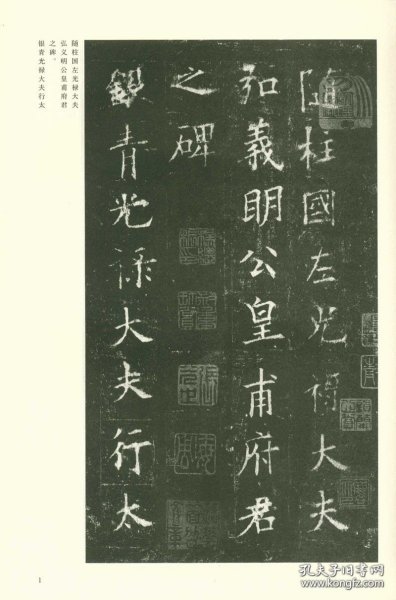 随柱國左光祿大夫
弘義明公皇甫府君
之碑
銀青光祿大夫行太
随柱国左光禄大夫
弘义明公皇甫府君
之碑。
银青光禄大夫行太
1
孔夫子旧书网
www.kongfz.com